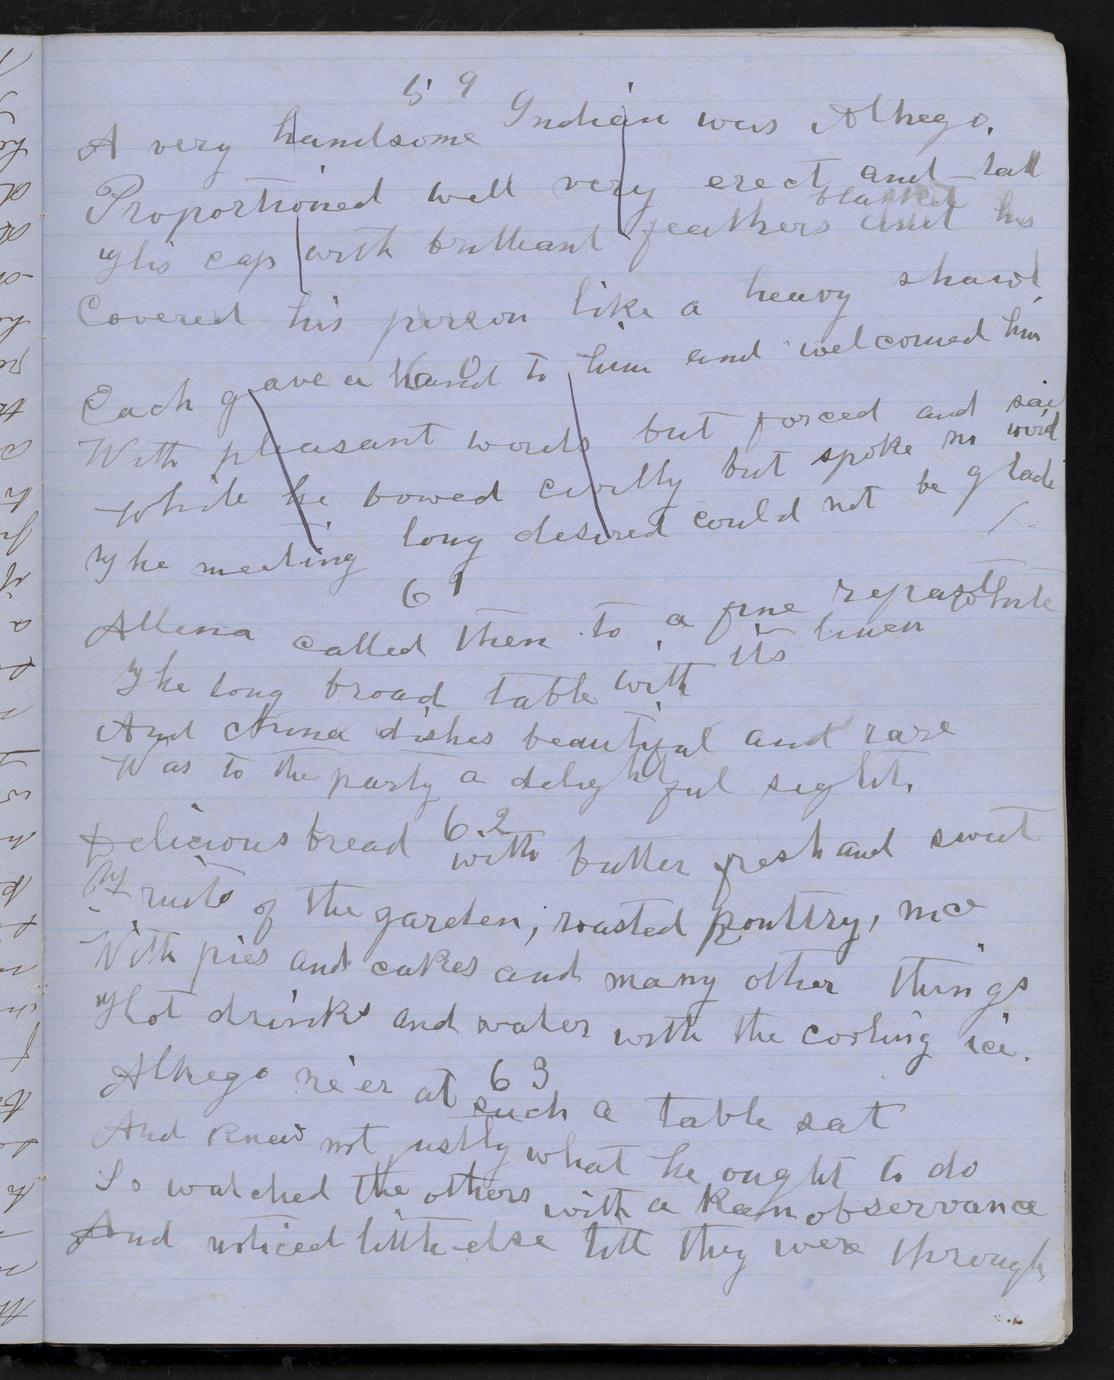 59
A very handsome Indian was Alhego,
Proportioned well very erect and tall
His cap with brilliant feathers and his blanket
Covered his person like a heavy shawl,
60
Each gave a hand to him and welcomed him
With pleasant words but forced and said
While he bowed civilly but spoke no word
The meeting long desired could not be glad
61
Allena called them to a fine repast
The long broad table with its linen white
And china dishes beautiful and rare
Was to the party a delightful sight.
62
Delicious bread with butter fresh and sweet
Fruits of the garden, roasted poultry, nice
With pies and cakes and many other things
Hot drinks and water with the cooling ice.
63
Alhego ne'er at such a table sat
And knew not justly what he ought to do
So watched the others with a keen observance
And noticed little else till they were through